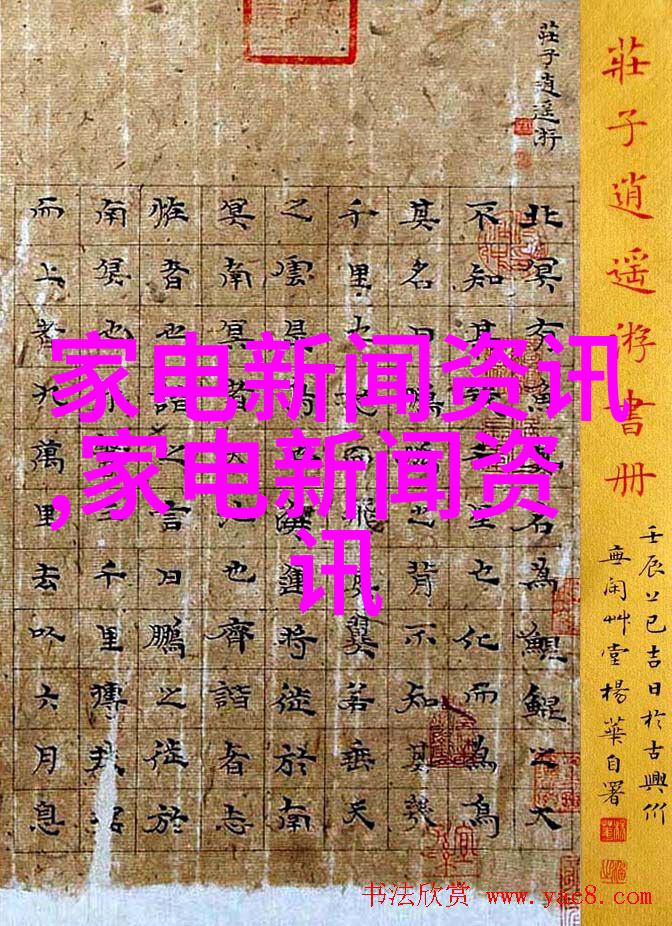 莊子逍遥游書册
壬辰上巳吉日於古興
無闲艸堂楊華自署
莊子逍遥游
北冥有魚其名為鯤鯤之大
不知其幾千里也化而為鳥
其名曰鵬鵬之背不知其幾
千里也怒而飛其翼若垂天
之雲是鳥也海運將徙於南
冥南冥者天池也齊諧者志
怪者也諧之言曰鵬之徙於
南冥也水擊三千里摶扶搖
而上者九萬里去以六月息
家电新闻资讯
,家电新闻资
讯
书法欣赏 www.yac8.com